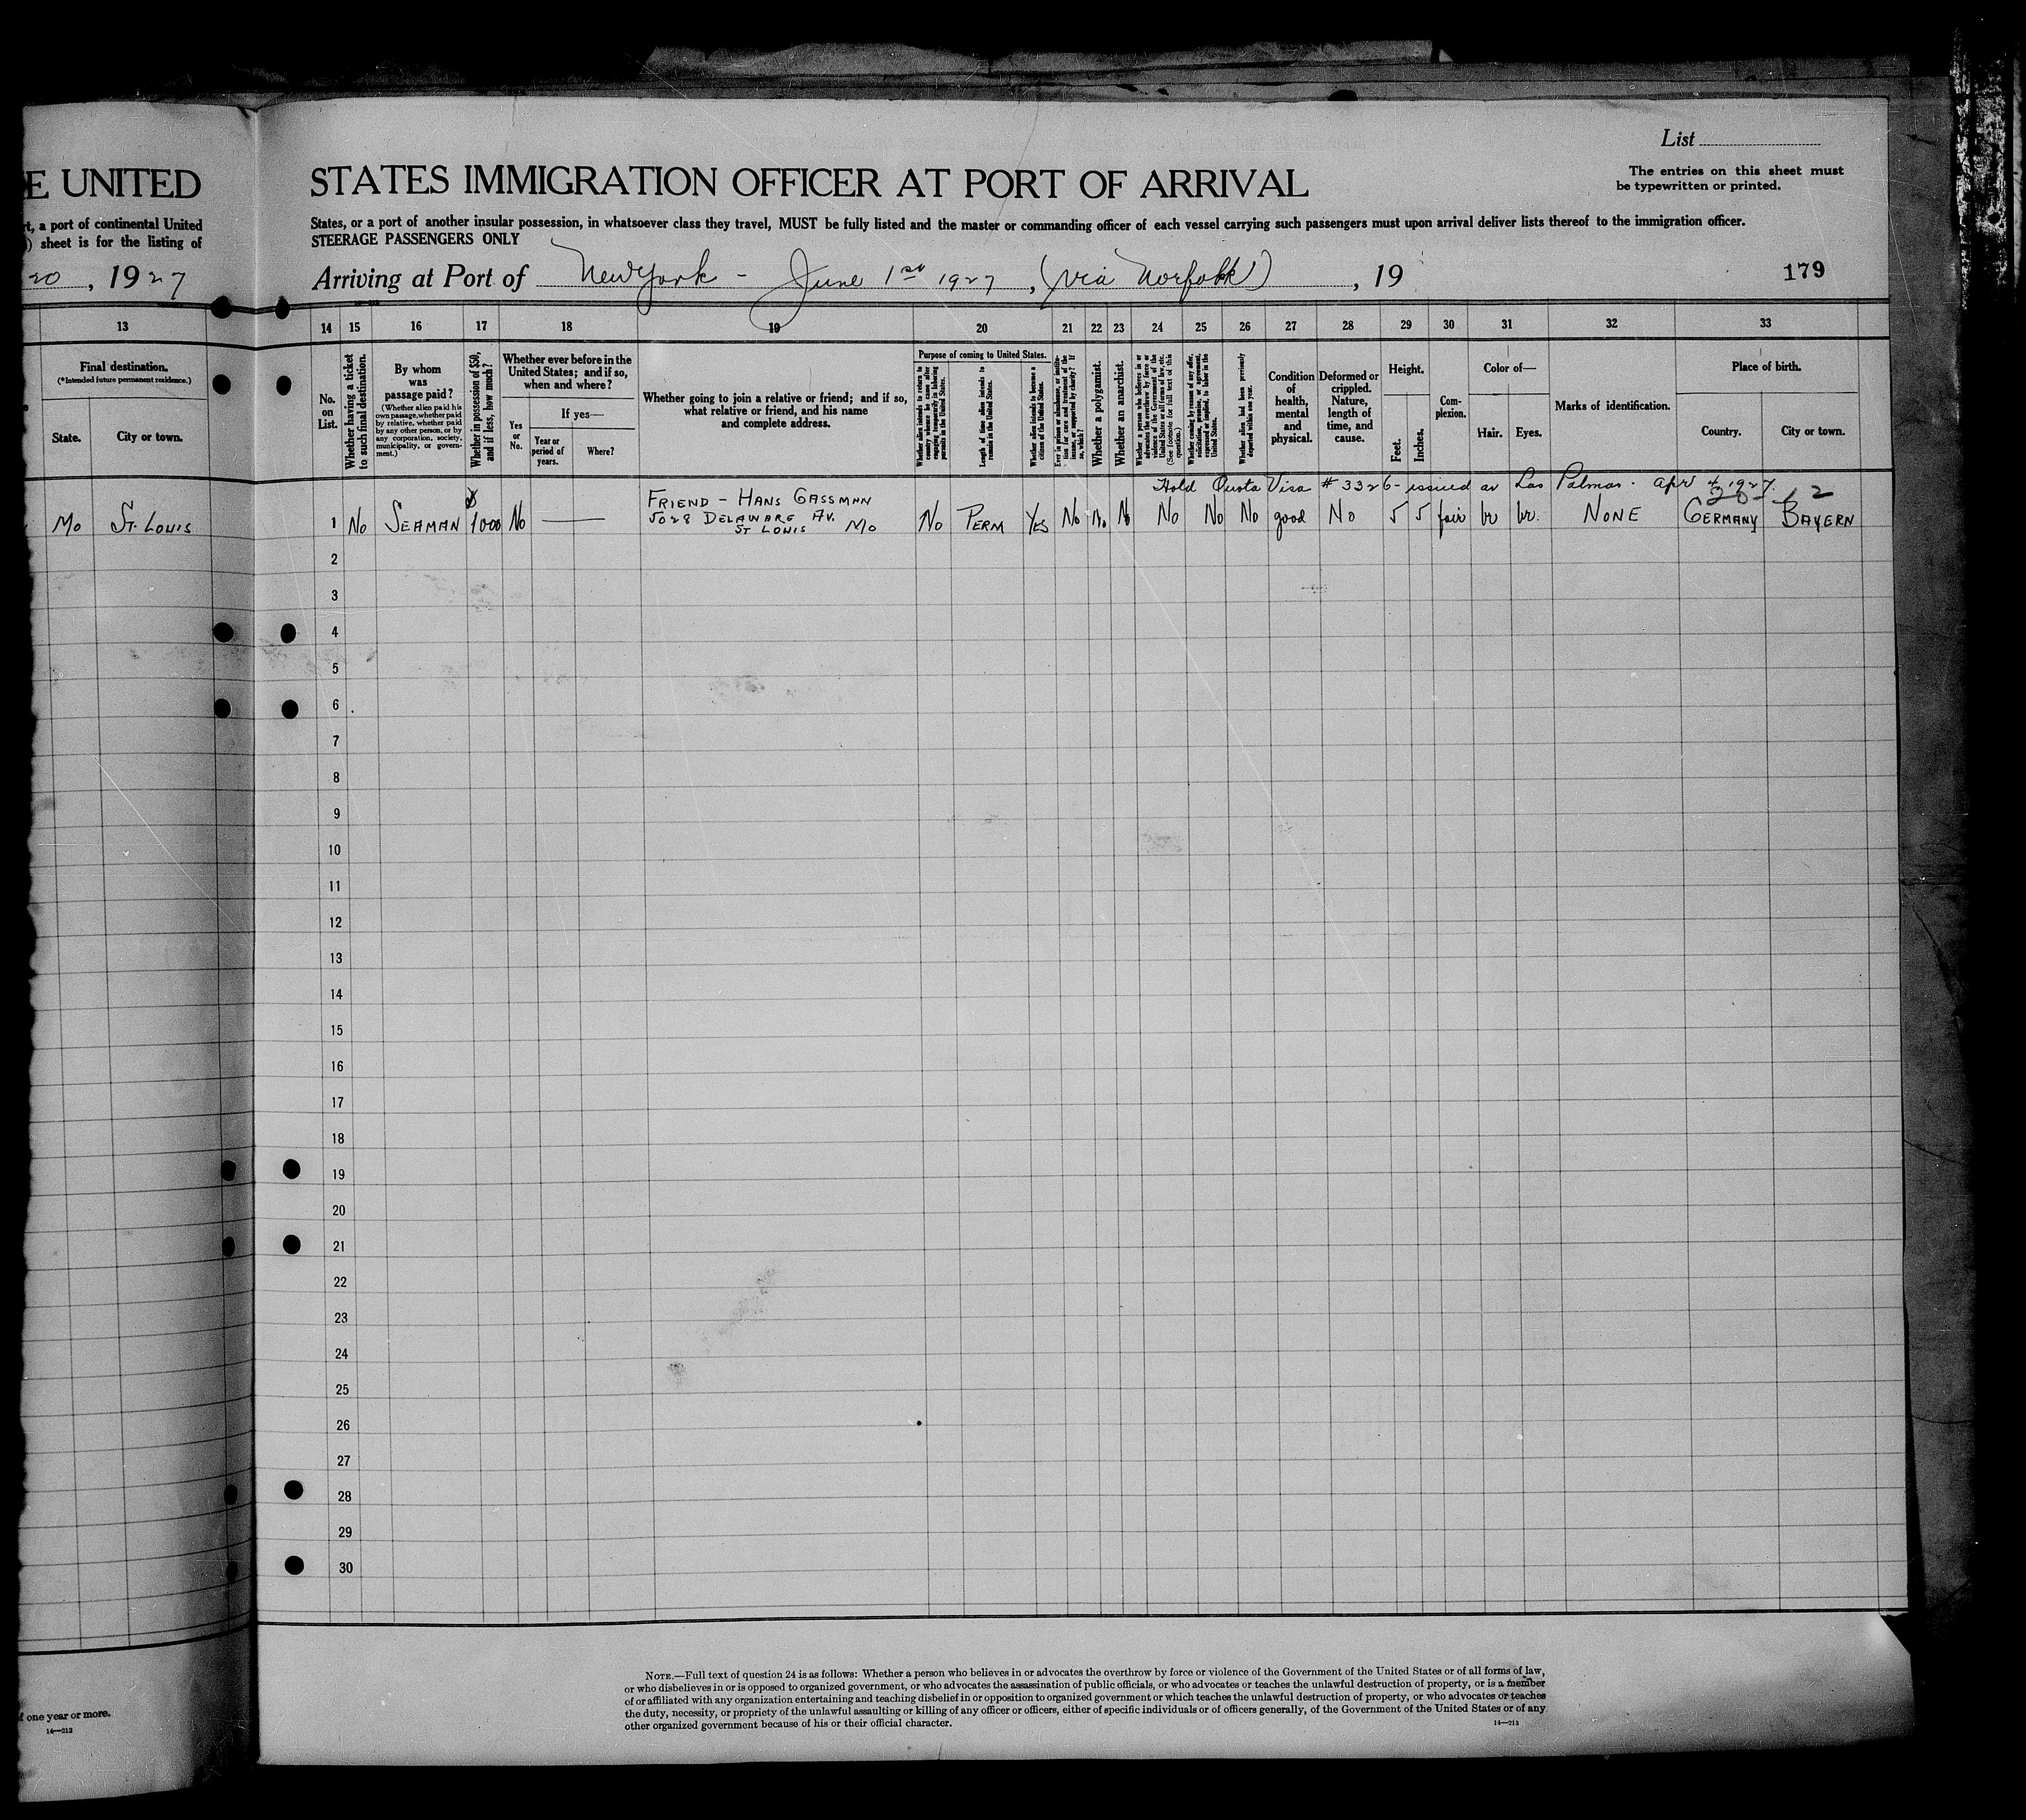 List
The entries on this sheet must
be typewritten or printed.
E UNITED
STATES IMMIGRATION OFFICER AT PORT OF ARRIVAL
a port of continental United
sheet is for the listing of
States, or a port of another insular possession, in whatsoever class they travel, MUST be fully listed and the master or commanding officer of each vessel carrying such passengers must upon arrival deliver lists thereof to the immigration officer.
STEERAGE PASSENGERS ONLY
20, 1927
Arriving at Port of New York - June 1st 1927, (via Norfolk), 19
179
13
14 15 16 17 18 19 20 21 22 23 24 25 26 27 28 29 30 31 32 33
Final destination.
(*Intended future permanent residence.)
State.
City or town.
No.
on
List.
Whether having a ticket
to such final destination.
By whom
was
passage paid?
(Whether alien paid his
own passage, whether paid
by relative, whether paid
by any other person, or by
any corporation, society,
municipality, or govern-
ment.)
Whether in possession of $50,
and if less, how much?
Whether ever before in the
United States; and if so,
when and where?
Yes
or
No.
If yes—
Year or
period of
years.
Where?
Whether going to join a relative or friend; and if so,
what relative or friend, and his name
and complete address.
Purpose of coming to United States.
Whether alien intends to return to
country whence he came after
engaging temporarily in laboring
pursuits in the United States.
Length of time alien intends to
remain in the United States.
Whether alien intends to become a
citizen of the United States.
Ever in prison or almshouse, or institu-
tion for care and treatment of the
insane, or supported by charity? If
so, which?
Whether a polygamist.
Whether an anarchist.
Whether a person who believes in or
advocates the overthrow by force or
violence of the Government of the
United States or all forms of law, etc.
(See footnote for full text of this
question.)
Whether coming by reason of any offer,
solicitation, promise, or agreement,
expressed or implied, to labor in the
United States.
Whether alien had been previously
deported within one year.
Condition
of
health,
mental
and
physical.
Deformed or
crippled.
Nature,
length of
time, and
cause.
Height.
Feet.
Inches.
Com-
plexion.
Color of—
Hair.
Eyes.
Marks of identification.
Place of birth.
Country.
City or town.
Hold Quota Visa # 3326 - issued at Las Palmas. Apr 4 1927.
Mo St. Louis
1 No SEAMAN $ 1000 No
FRIEND - HANS GASSMAN
5028 DELAWARE AV.
ST LOUIS MO
No PERM YES No No No No No No good No 5 5 fair br br. NONE GERMANY BAYERN
2
3
4
5
6
7
8
9
10
11
12
13
14
15
16
17
18
19
20
21
22
23
24
25
26
27
28
29
30
one year or more.
14—213
NOTE.—Full text of question 24 is as follows: Whether a person who believes in or advocates the overthrow by force or violence of the Government of the United States or of all forms of law,
or who disbelieves in or is opposed to organized government, or who advocates the assassination of public officials, or who advocates or teaches the unlawful destruction of property, or is a member
of or affiliated with any organization entertaining and teaching disbelief in or opposition to organized government or which teaches the unlawful destruction of property, or who advocates or teaches
the duty, necessity, or propriety of the unlawful assaulting or killing of any officer or officers, either of specific individuals or of officers generally, of the Government of the United States or of any
other organized government because of his or their official character.
14—213